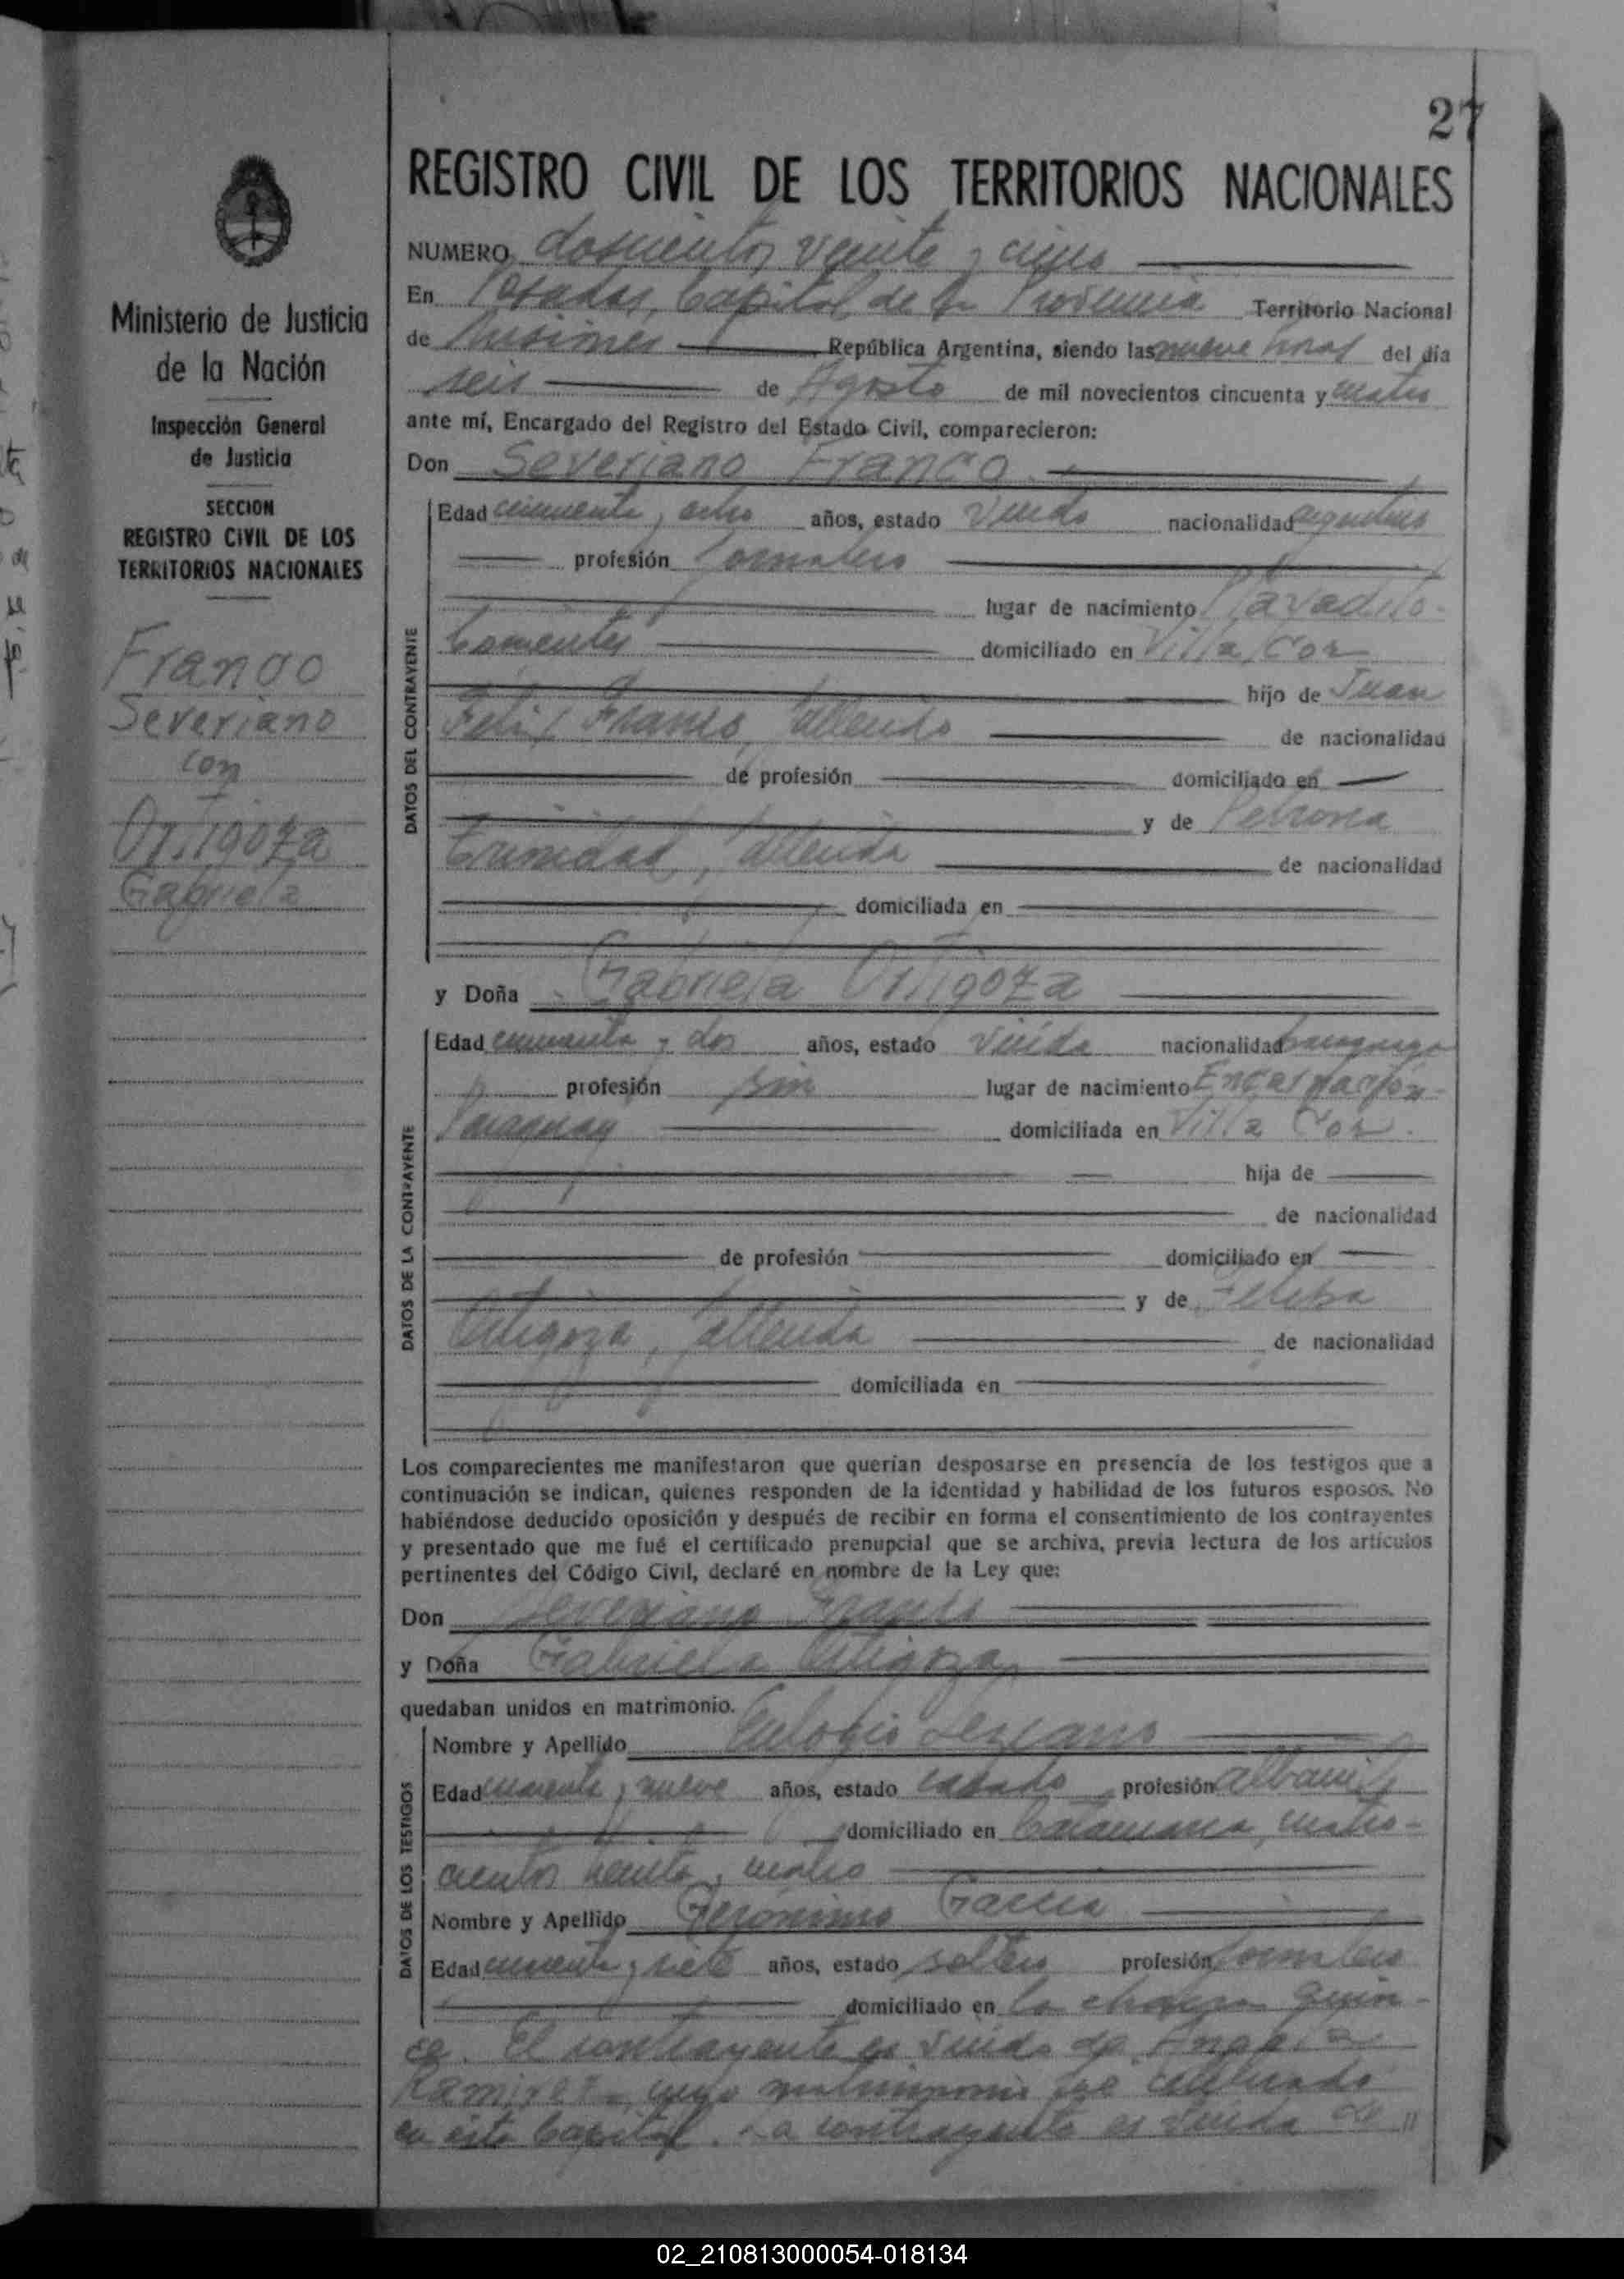 27
REGISTRO CIVIL DE LOS TERRITORIOS NACIONALES
Ministerio de Justicia
de la Nación
Inspección General
de Justicia
SECCION
REGISTRO CIVIL DE LOS
TERRITORIOS NACIONALES
Franco
Severiano
con
Ortigoza
Gabriela
NUMERO doscientos veinte y cinco
En Posadas, Capital de la Provincia Territorio Nacional
de Misiones República Argentina, siendo las nueve horas del día
seis de Agosto de mil novecientos cincuenta y cuatro
ante mí, Encargado del Registro del Estado Civil, comparecieron:
Don Severiano Franco
DATOS DEL CONTRAYENTE
Edad cincuenta y ocho años, estado Viudo nacionalidad argentino
profesión Jornalero
lugar de nacimiento
Corrientes domiciliado en Villa Coz
hijo de Juan
Feliz Franco, fallecido de nacionalidad
de profesión domiciliado en
y de Petrona
Trinidad, fallecida de nacionalidad
domiciliada en
y Doña Gabriela Ortigoza
DATOS DE LA CONTRAYENTE
Edad cincuenta y dos años, estado Viuda nacionalidad paraguaya
profesión sin lugar de nacimiento Encarnación
Paraguay domiciliada en Villa Coz.
hija de
de nacionalidad
de profesión domiciliado en
y de Felipa
Ortigoza, fallecida de nacionalidad
domiciliada en
Los comparecientes me manifestaron que querían desposarse en presencia de los testigos que a
continuación se indican, quienes responden de la identidad y habilidad de los futuros esposos. No
habiéndose deducido oposición y después de recibir en forma el consentimiento de los contrayentes
y presentado que me fué el certificado prenupcial que se archiva, previa lectura de los artículos
pertinentes del Código Civil, declaré en nombre de la Ley que:
Don Severiano Franco
y Doña Gabriela Ortigoza
quedaban unidos en matrimonio.
DATOS DE LOS TESTIGOS
Nombre y Apellido Eulogio Lezcano
Edad y nueve años, estado casado profesión albañil
domiciliado en Catamarca, cuatro-
cientos y cuatro
Nombre y Apellido Gerónimo García
Edad y siete años, estado soltero profesión Jornalero
domiciliado en la chacra quin-
ce. El contrayente es viudo de Angela
Ramirez, cuyo matrimonio fue celebrado
en ésta Capital. La contrayente es viuda de "
02_210813000054-018134